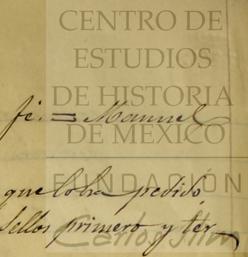 CENTRO DE
ESTUDIOS
DE HISTORIA
fé. = Manuel
DE MÉXICO
FUNDACIÓN
que lo ha pedido,
sellos primero y ter
Carlos Slim